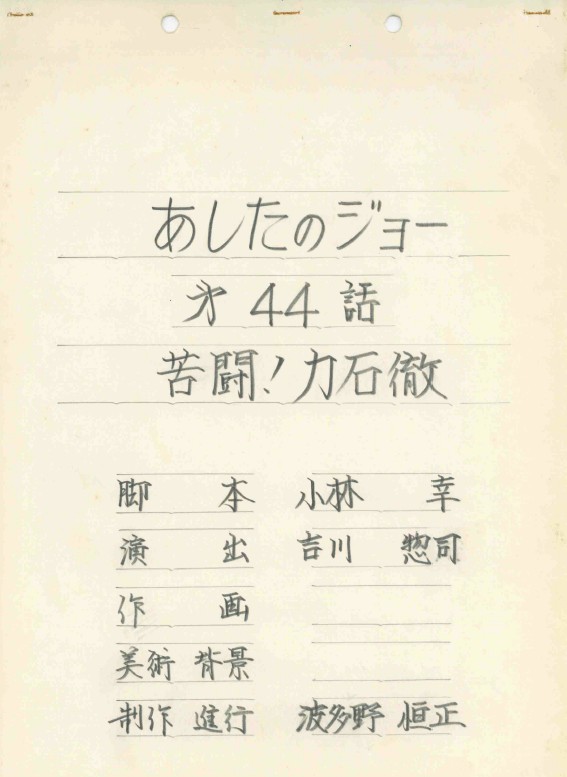 あしたのジョー
才44話
苦闘！力石徹
脚本 小林 幸
演出 吉川 惣司
作画
美術 背景
制作 進行 波多野 恒正